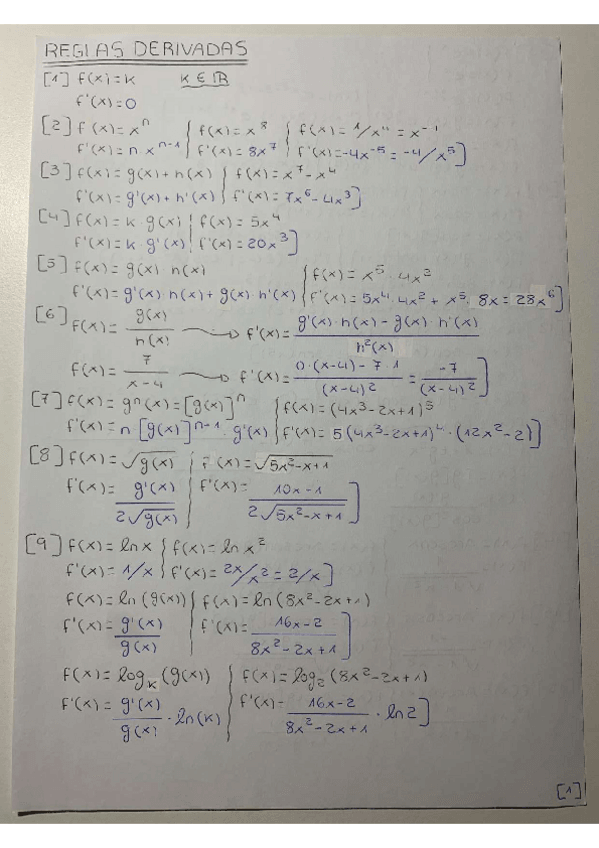 REGLAS DERIVADAS
[1] f(x) = k    k ∈ ℝ
f'(x) = 0
[2] f(x) = xⁿ { f(x) = x⁸ { f(x) = 1/x⁴ = x⁻⁴
f'(x) = n xⁿ⁻¹ { f'(x) = 8x⁷ { f'(x) = -4x⁻⁵ = -4/x⁵ ]
[3] f(x) = g(x) + h(x) { f(x) = x⁷ - x⁴
f'(x) = g'(x) + h'(x) { f'(x) = 7x⁶ - 4x³ ]
[4] f(x) = k · g(x) { f(x) = 5x⁴
f'(x) = k · g'(x) { f'(x) = 20x³ ]
[5] f(x) = g(x) · h(x) { f(x) = x⁵ · 4x²
f'(x) = g'(x) · h(x) + g(x) · h'(x) { f'(x) = 5x⁴ · 4x² + x⁵ · 8x = 28x⁶ ]
[6] f(x) = g(x)/h(x) → f'(x) = (g'(x) · h(x) - g(x) · h'(x))/h²(x)
f(x) = 7/(x-4) → f'(x) = (0·(x-4) - 7·1)/(x-4)² = -7/(x-4)² ]
[7] f(x) = gⁿ(x) = [g(x)]ⁿ { f(x) = (4x³-2x+1)⁵
f'(x) = n · [g(x)]ⁿ⁻¹ · g'(x) { f'(x) = 5(4x³-2x+1)⁴ · (12x²-2) ]
[8] f(x) = √g(x) { f(x) = √(5x²-x+1)
f'(x) = g'(x)/(2√g(x)) { f'(x) = (10x-1)/(2√(5x²-x+1)) ]
[9] f(x) = ln x { f(x) = ln x²
f'(x) = 1/x { f'(x) = 2x/x² = 2/x ]
f(x) = ln(g(x)) { f(x) = ln(8x²-2x+1)
f'(x) = g'(x)/g(x) { f'(x) = (16x-2)/(8x²-2x+1) ]
f(x) = logₖ(g(x)) { f(x) = log₂(8x²-2x+1)
f'(x) = g'(x)/g(x) · ln(k) { f'(x) = (16x-2)/(8x²-2x+1) · ln2 ]
[1]